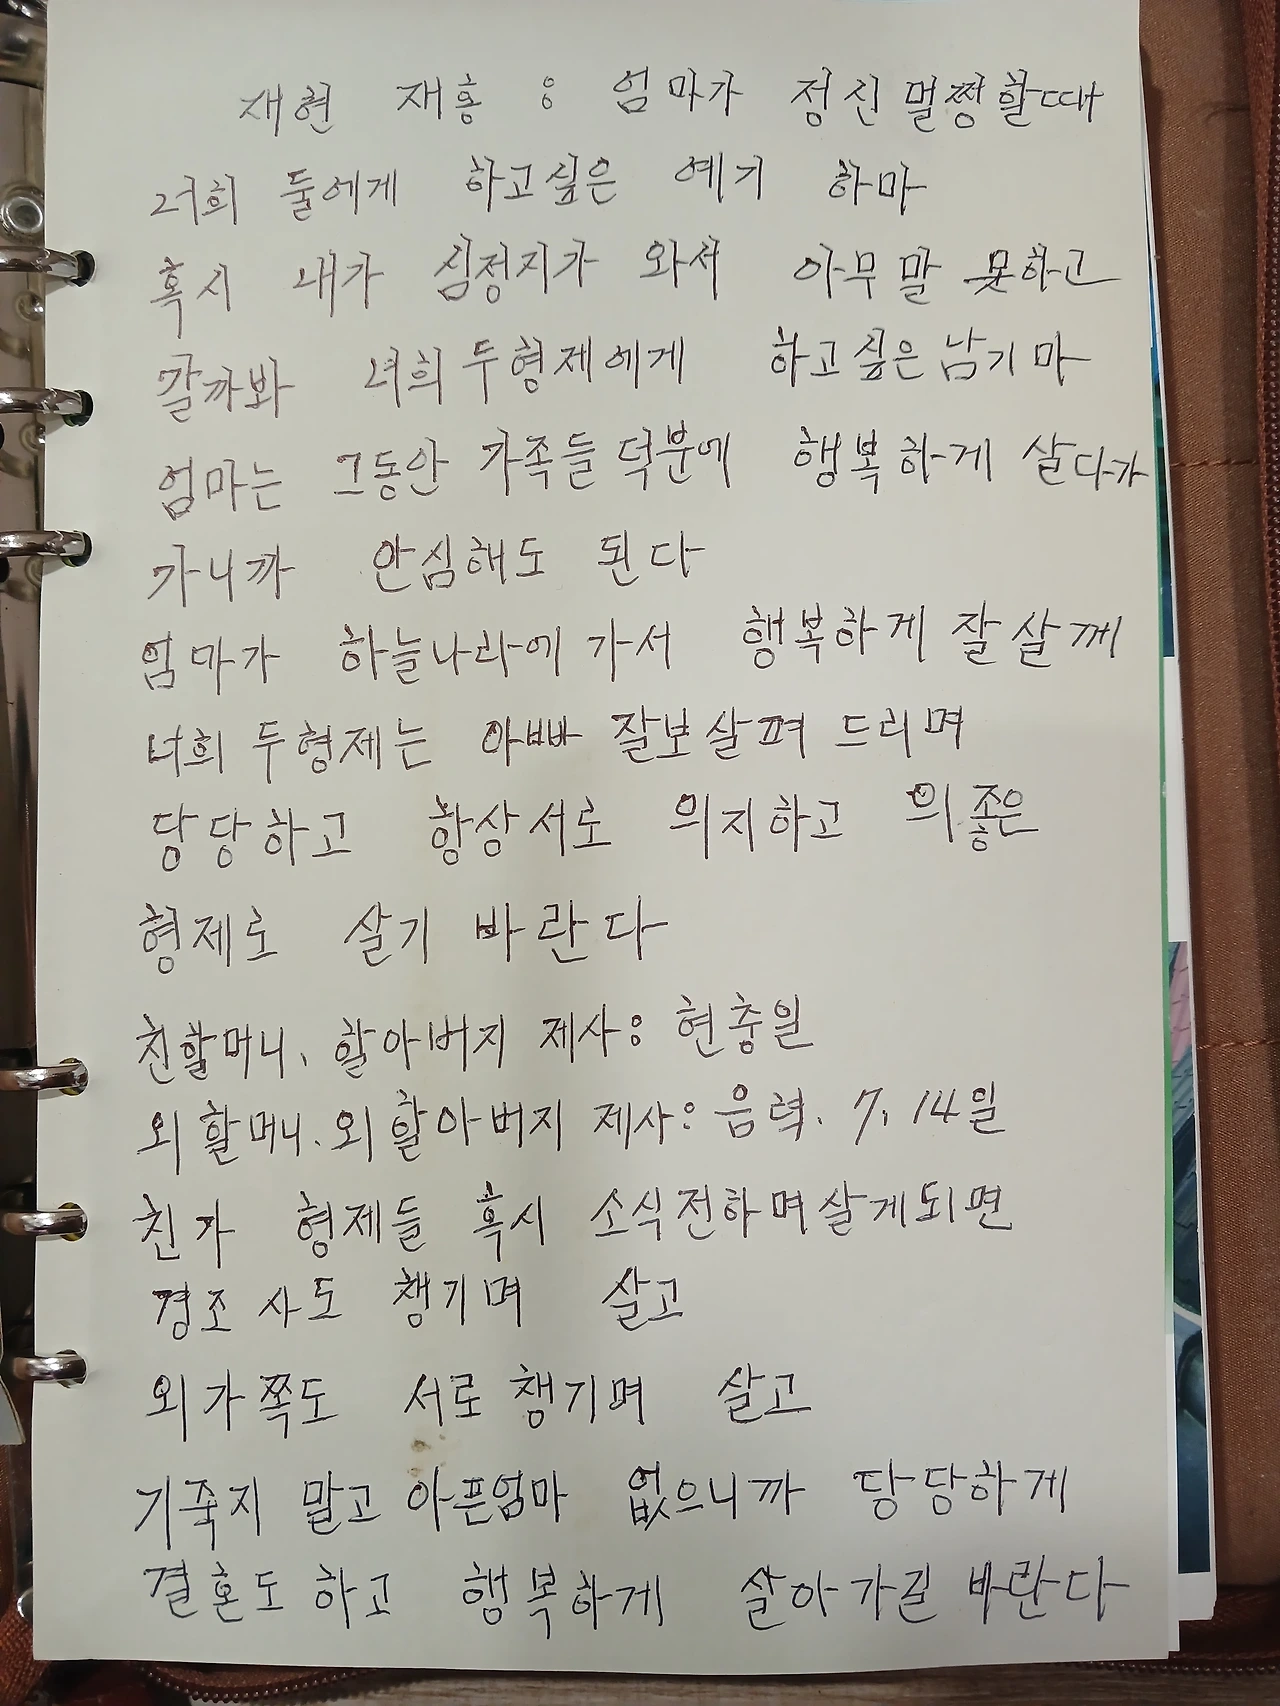 재현 재홍 : 엄마가 정신 멀쩡할때
너희 둘에게 하고싶은 예기 하마
혹시 내가 심정지가 와서 아무말 못하고
갈까봐 너희 두형제에게 하고싶은 남기마
엄마는 그동안 가족들 덕분에 행복하게 살다가
가니까 안심해도 된다
엄마가 하늘나라에 가서 행복하게 잘살께
너희 두형제는 아빠 잘보살펴 드리며
당당하고 항상서로 의지하고 의좋은
형제로 살기 바란다
친할머니, 할아버지 제사: 현충일
외할머니. 외할아버지 제사: 음력. 7, 14일
친가 형제들 혹시 소식전하며살게되면
경조사도 챙기며 살고
외가쪽도 서로챙기며 살고
기죽지 말고 아픈엄마 없으니까 당당하게
결혼도 하고 행복하게 살아가길 바란다